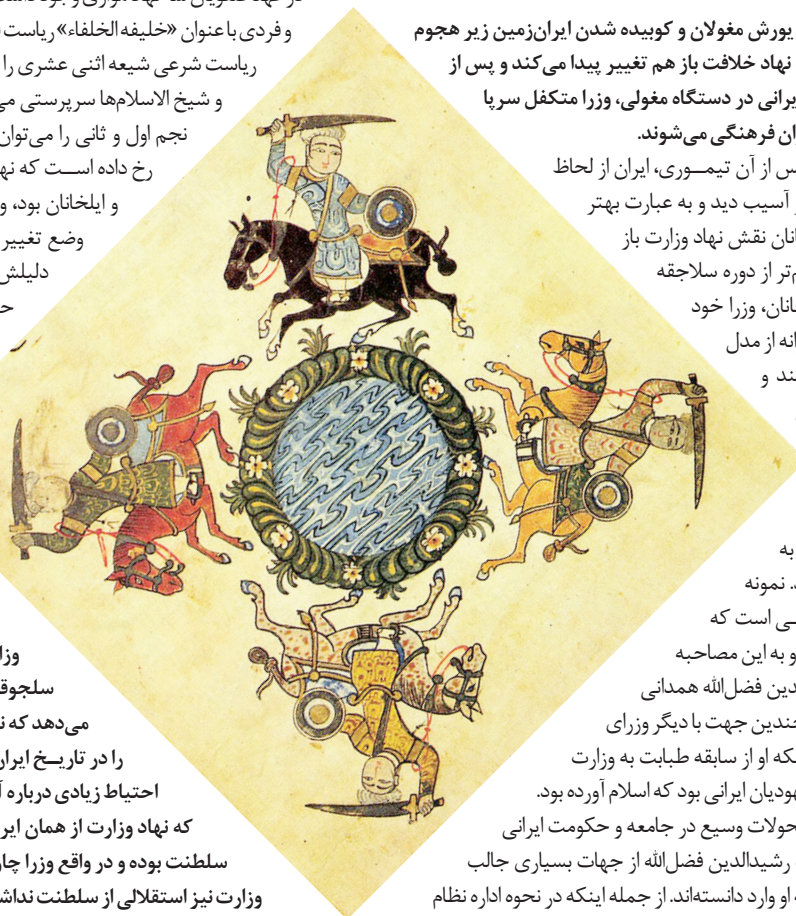 یورش مغولان و کوبیده شدن ایران‌زمین زیر هجوم
نهاد خلافت باز هم تغییر پیدا می‌کند و پس از
یرانی در دستگاه مغولی، وزرا متکفل سرپا
ان فرهنگی می‌شوند.
س از آن تیمــوری، ایران از لحاظ
ر آسیب دید و به عبارت بهتر
انان نقش نهاد وزارت باز
م‌تر از دوره سلاجقه
انان، وزرا خود
انه از مدل
ند و
به
. نمونه
ـی است که
و به این مصاحبه
دین فضل‌الله همدانی
چندین جهت با دیگر وزرای
نکه او از سابقه طبابت به وزارت
هودیان ایرانی بود که اسلام آورده بود.
حولات وسیع در جامعه و حکومت ایرانی
رشیدالدین فضل‌الله از جهات بسیاری جالب
ه او وارد دانسته‌اند. از جمله اینکه در نحوه اداره نظام
و فردی با عنوان «خلیفه الخلفاء» ریاست
ریاست شرعی شیعه اثنی عشری را
و شیخ الاسلام‌ها سرپرستی می
نجم اول و ثانی را می‌توان
رخ داده اســت که نه
و ایلخانان بود، و
وضع تغییر
دلیلش
ح
وزا
سلجوقـ
می‌دهد که نـ
را در تاریــخ ایران
احتیاط زیادی درباره آ
که نهاد وزارت از همان ایر
سلطنت بوده و در واقع وزرا چار
وزارت نیز استقلالی از سلطنت نداش